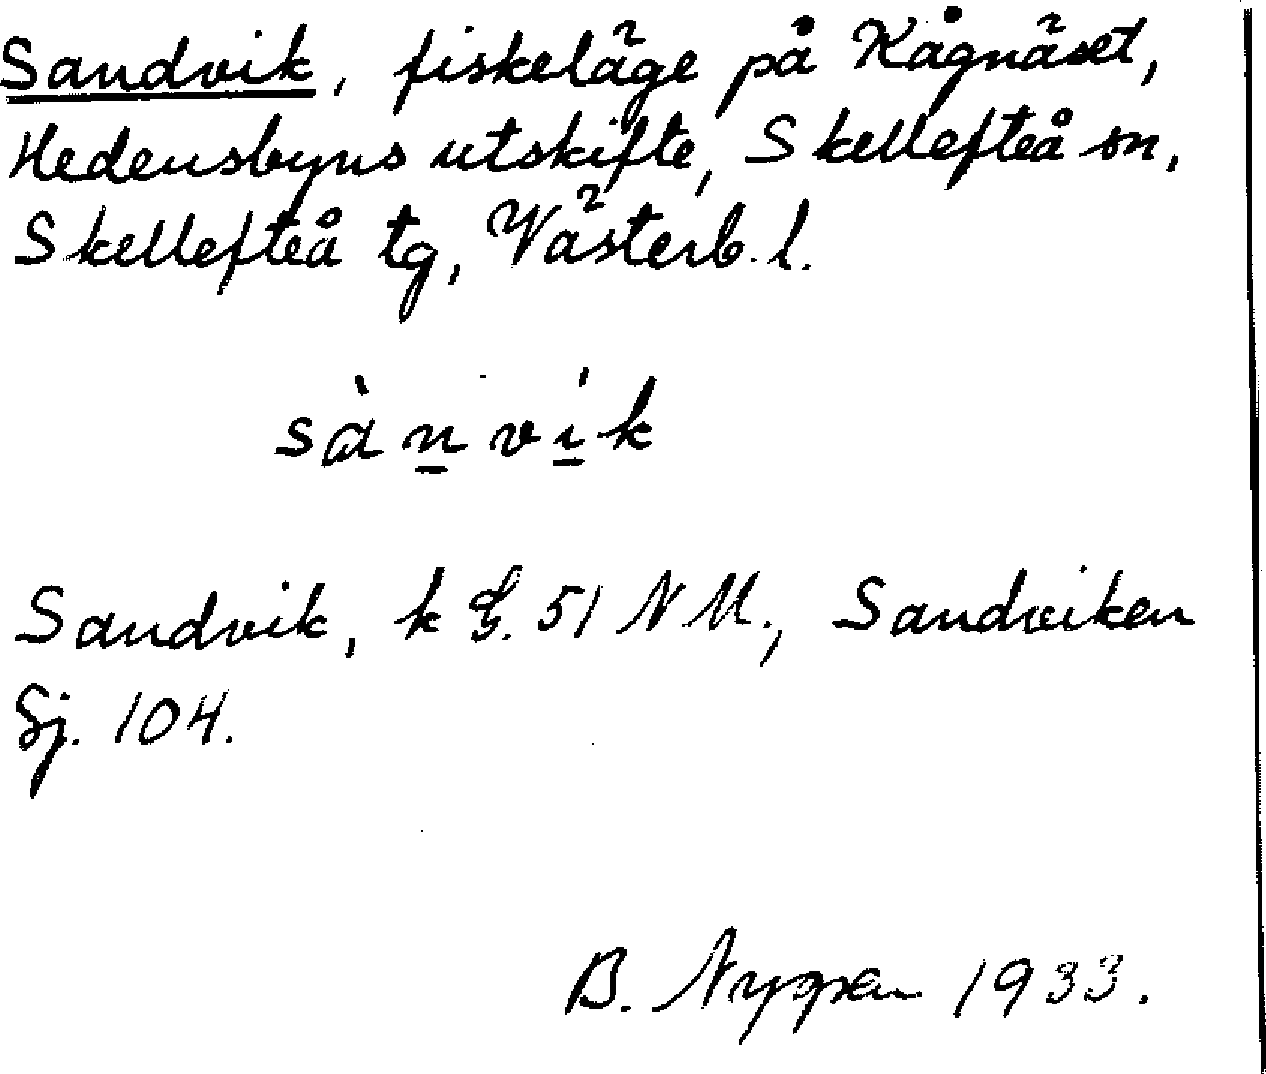 Sandvik, fiskeläge på Kågnäset,
Hedensbyns utskifte, Skellefteå sn,
Skellefteå tg, Västerb. l.
sànvík
Sandvik, k G. 51 N M., Sandviken
Sj. 104.
B. 1933.